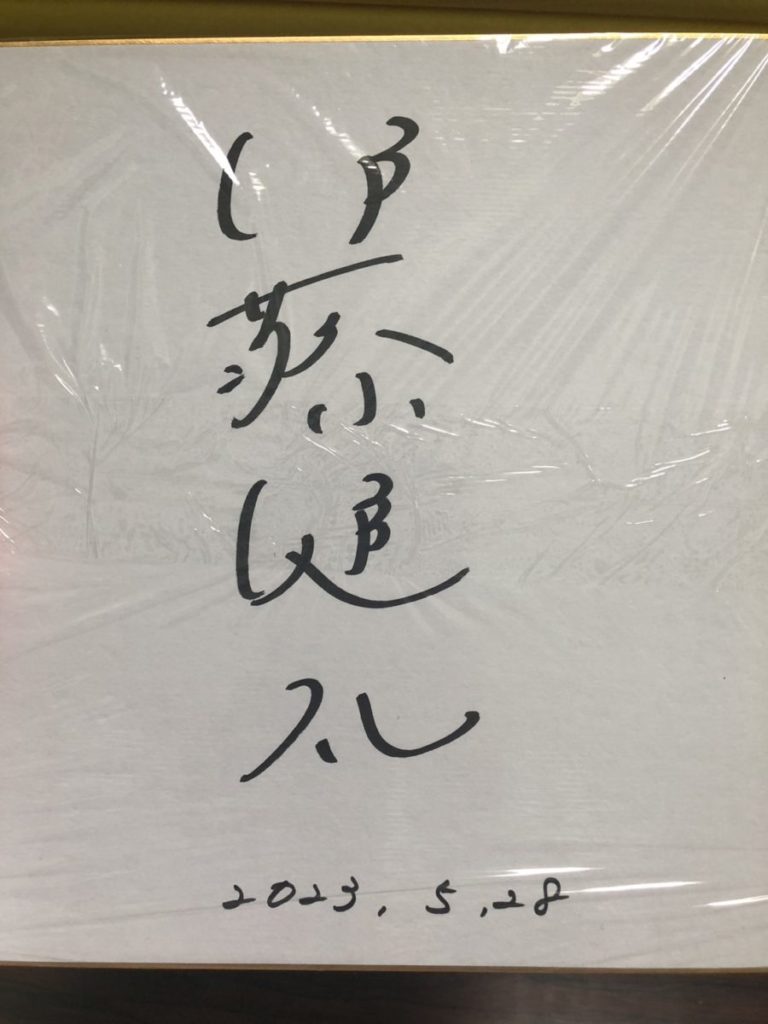 伊藤健礼
2023.5.28